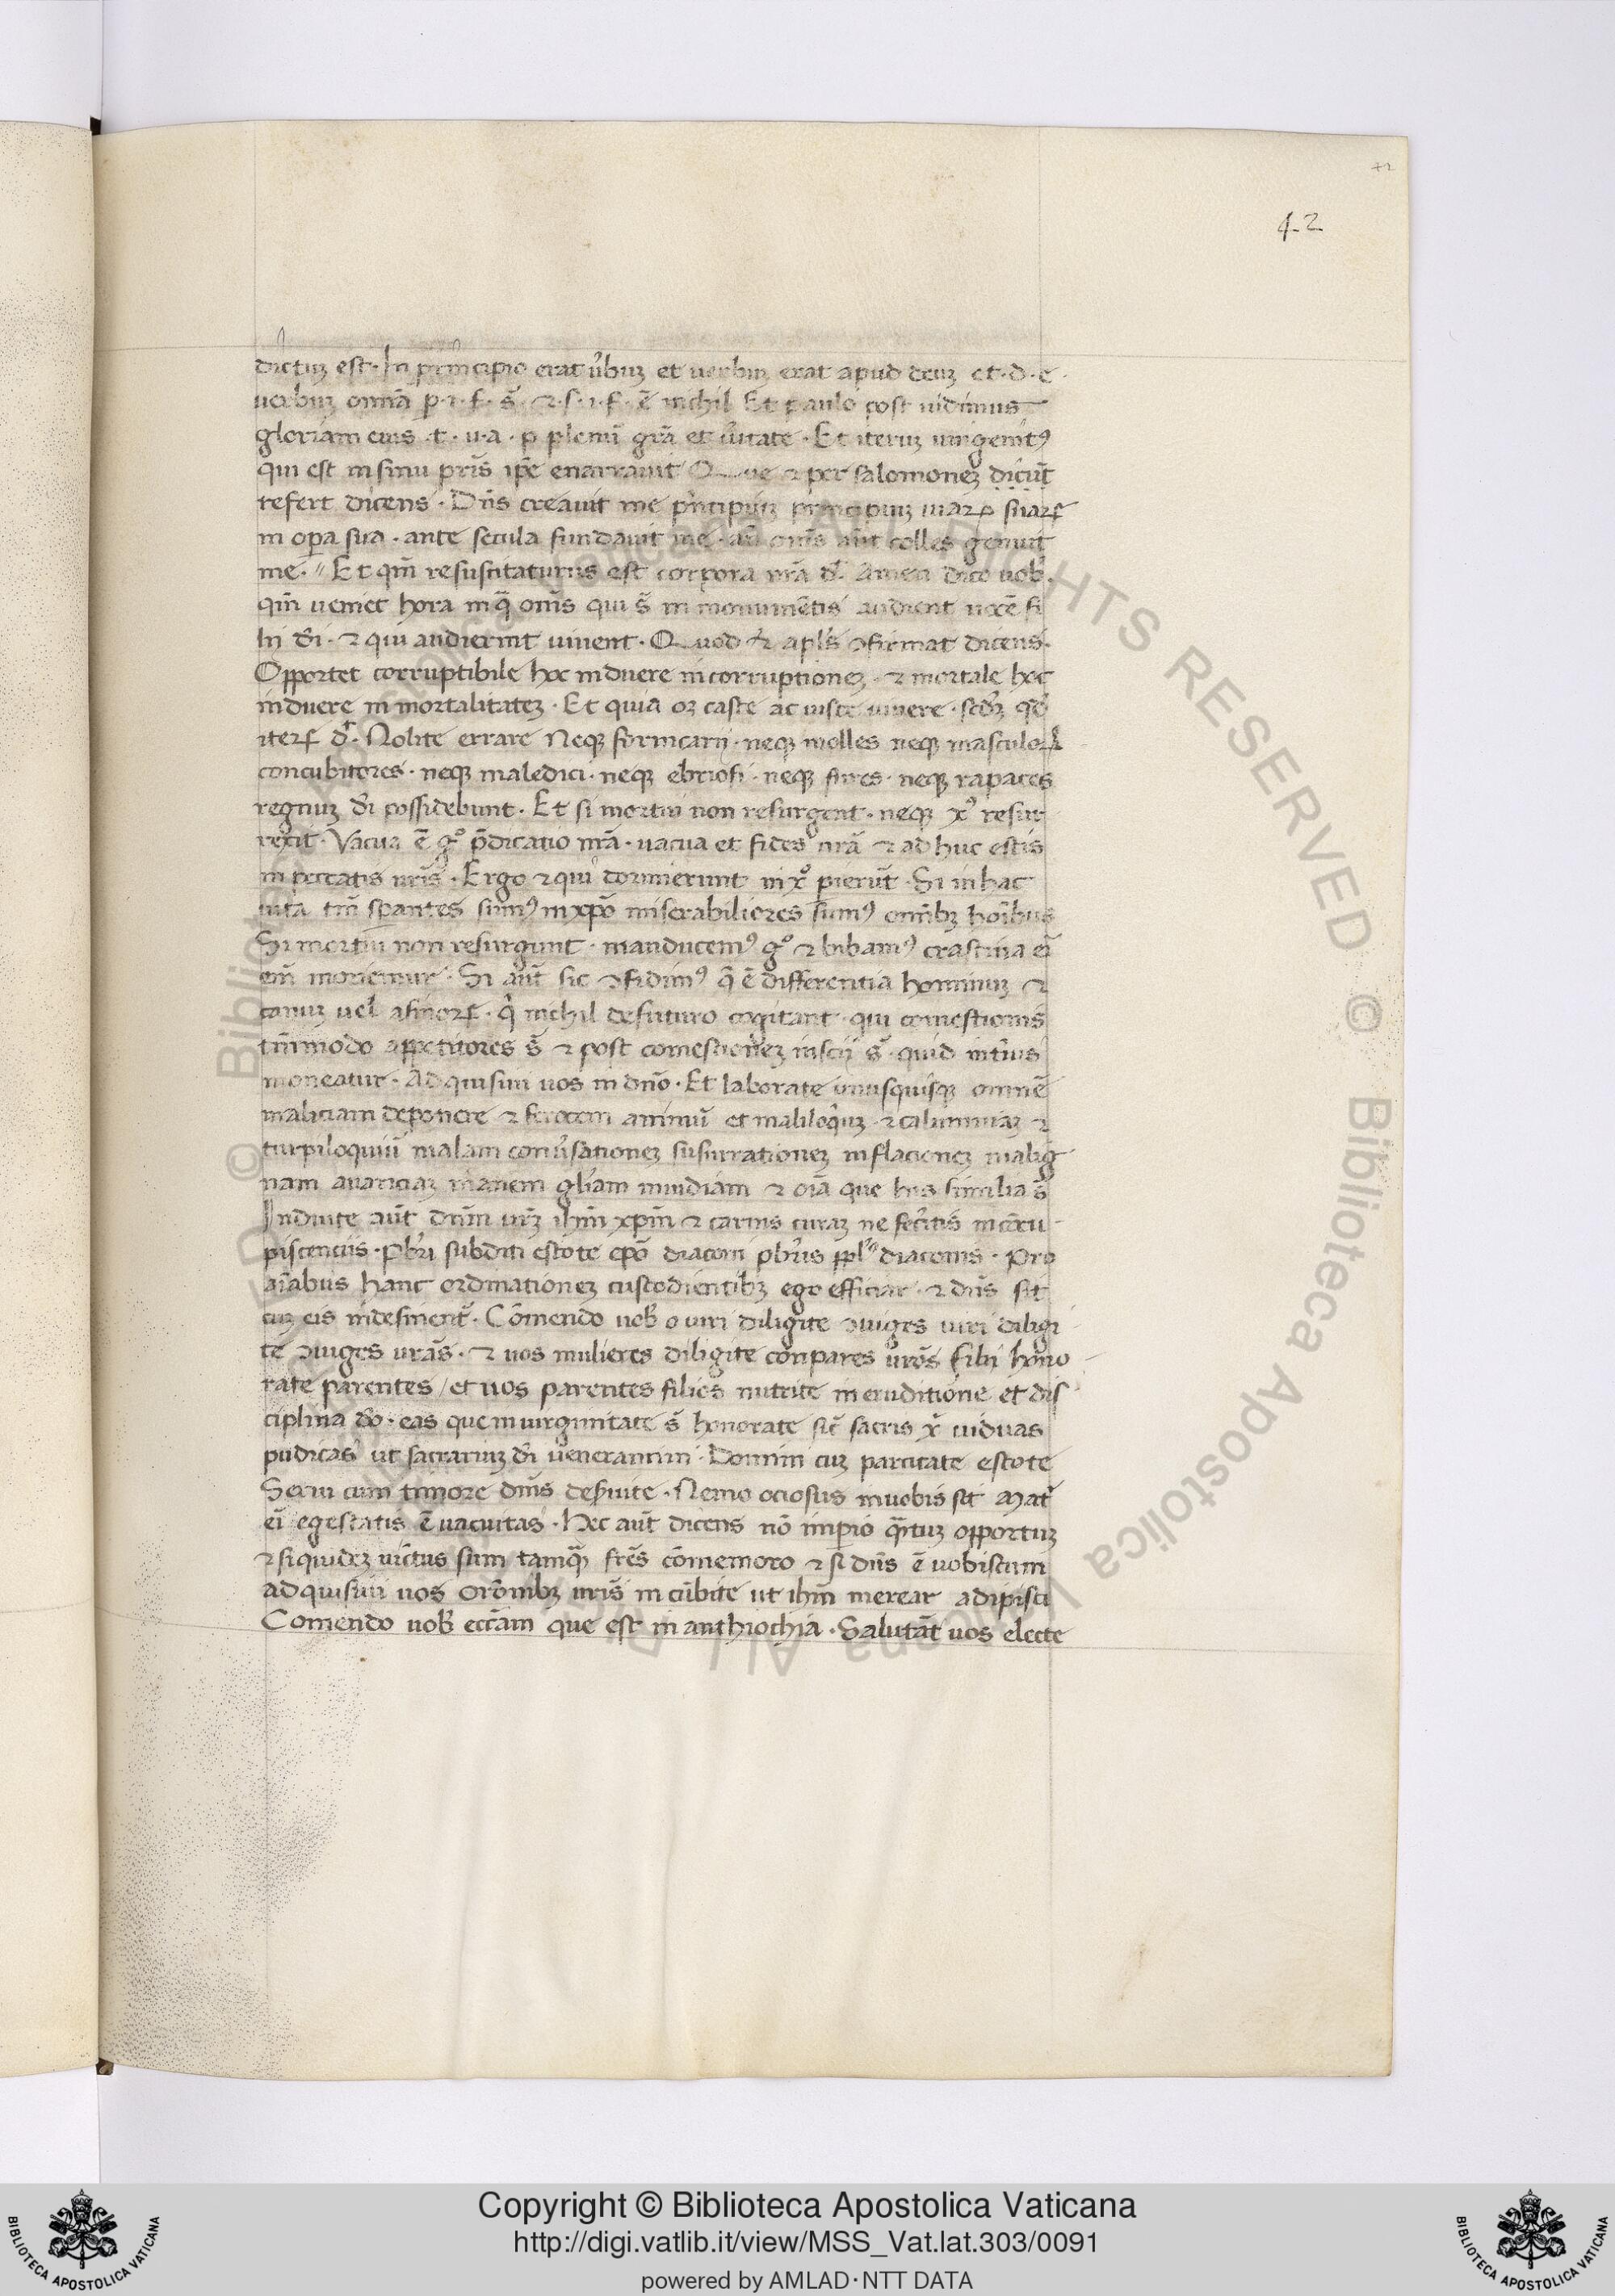 42
42
dictuꝫ est · In principio erat ỽbuꝫ et verbuꝫ erat apud deuꝫ et · d · e ·
verbuꝫ omnia p · i · f · s̃ · ⁊ · s · i · f · ē nichil Et paulo post vidimus
gloriam eius · t · u · a · p plenū grã et ỽitate · Et iteruꝫ unigenitꝰ
qui est in sinu pr̃is ip̃e enarravit Que ⁊ per salomoneꝫ dicũt
refert dicens · Dñs creavit me pͥncipiuꝫ principiuꝫ viaꝝ suaꝝ
in oꝑa sua · ante secula fundavit me · añ om̃s aũt colles genuit
me · // Et qm̃ resuscitaturus est corpora nrã dꝛ̃ Amen dico vob̃ ·
qm̃ veniet hora in q̃ om̃s qui s̃ in monumẽtis audient vocẽ fi
lii dei · ⁊ qui audierint vivent · Quod ⁊ apl̃s ɔfirmat dicens ·
Opportet corruptibile hoc induere incorruptioneꝫ · ⁊ mortale hoc
induere inmortalitateꝫ · Et quia oꝫ caste ac iuste vivere · scđꝫ qđ
iteꝝ dꝛ̃ · Nolite errare Neqꝫ fornicarii · neqꝫ molles neqꝫ masculoꝝ
concubitores · neqꝫ maledici · neqꝫ ebriosi · neqꝫ fures · neqꝫ rapaces
regnuꝫ dei possidebunt · Et si mortui non resurgent · neqꝫ xꝰ resur
rexit · Vacua ē gͦ p̄dicatio nrã · vacua et fides nrã ⁊ ad huc estis
in peccatis vr̃is · Ergo ⁊ qui dormierunt in xͦ pierũt · Si in hac
vita tm̃ sperantes sumꝰ in xp̃o miserabiliores sumꝰ omnibꝫ hoĩbus
Si mortui non resurgunt · manducemꝰ gͦ ⁊ bibamꝰ crastina ei
em̃ moriemur · Si aũt sic ɔfidimꝰ q̃ ē differentia hominuꝫ ⁊
canuꝫ vel asinoꝝ · qͥ nichil defuturo cogitant · qui comestionis
tm̃modo appetitores s̃ ⁊ post comestioneꝫ inscii s̃ · quid intͥus
moneatur · Adquisivi vos in dño · Et laborate unusquisqꝫ omnẽ
maliciam deponere ⁊ ferocem animũ et maliloqͥuꝫ ⁊ calumniaꝫ ⁊
turpiloquiũ malam conỽsationeꝫ susurrationeꝫ inflacioneꝫ malig̃
nam avariciaꝫ inanem gl̃iam invidiam ⁊ oĩa que his similia s̃
Induite aũt dnm̃ vr̃ꝫ ih̃m xp̃m ⁊ carnis curaꝫ ne fecitis in cõcu
piscenciis · Pbr̃i subditi estote ep̃o diaconi pbr̃is ppl̃s diaconis · Pro
aĩabus hanc ordinationeꝫ custodientibꝫ ego efficiar · ⁊ dñs sit
cuꝫ eis indesinent̃ · Cõmendo vob̃ o viri diligite ɔiuges viri diligi
te ɔiuges vrãs · ⁊ vos mulieres diligite conpares vr̃os filii hono
rate parentes / et vos parentes filios nutrite in eruditione et dis
ciplina dõ · eas que in virginitate s̃ honorate sic̃ sacris xͥ viduas
pudicas ut sacrariuꝫ dei venerantini · Domini cuꝫ parcitate estote
Servi cum timore dñis deẜvite · Nemo ociosus in vobis sit Mat̃
ei egestatis ē vacuitas · Hec aũt dicens nõ impio q̃ntuꝫ opportuꝫ
⁊ si quideꝫ vinctus sum tamqꝫ fr̃es cõmemoro ⁊ si dñs ē vobiscum
adquisivi vos orõnibꝫ vr̃is incũbite ut ih̃m merear adipisci
Comendo vob̃ ecc̃am que est in anthiochia · Salutãt vos electe
Copyright © Biblioteca Apostolica Vaticana
http://digi.vatlib.it/view/MSS_Vat.lat.303/0091
powered by AMLAD · NTT DATA
BIBLIOTECA APOSTOLICA VATICANA
BIBLIOTECA APOSTOLICA VATICANA